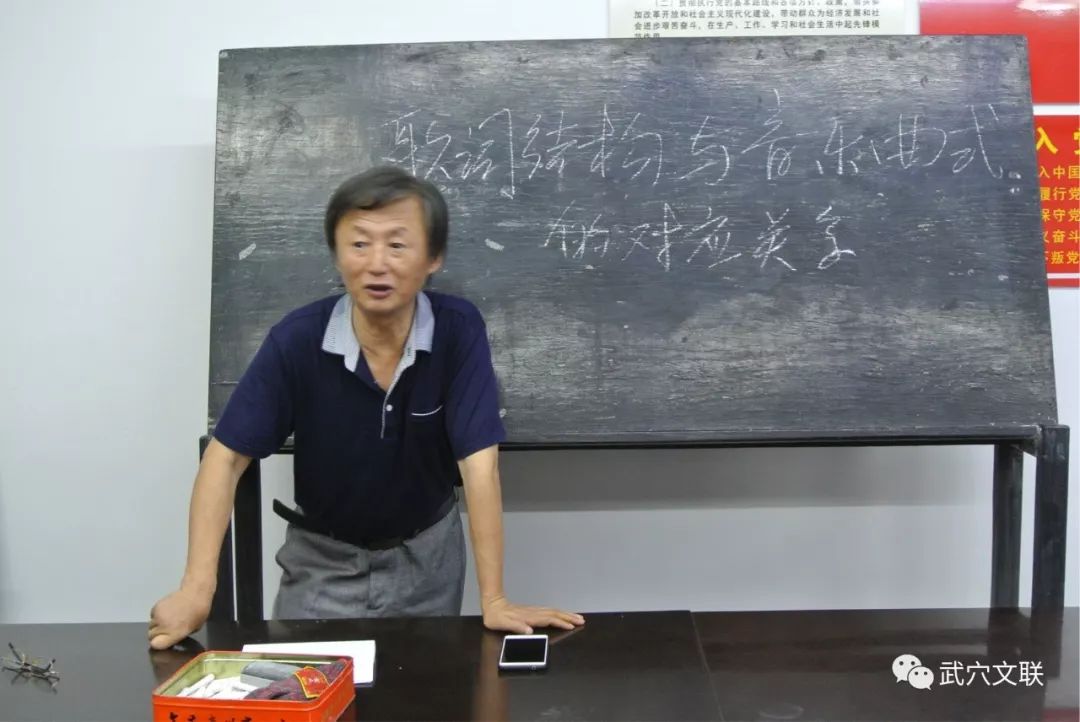 (二) 贯彻执行党的基本路线和各项方针、政策，带头参
加改革开放和社会主义现代化建设，带动群众为经济发展和社
会进步艰苦奋斗，在生产、工作、学习和社会生活中起先锋模
范作用
歌词结构与音乐曲式
的对应美学
入
入中国
履行党
保守党
义奋斗
叛党
武穴文联